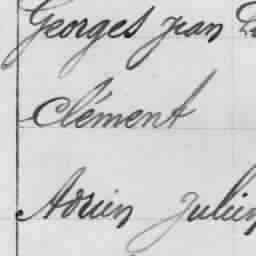 Georges Jean
Clément
Adrien Julien